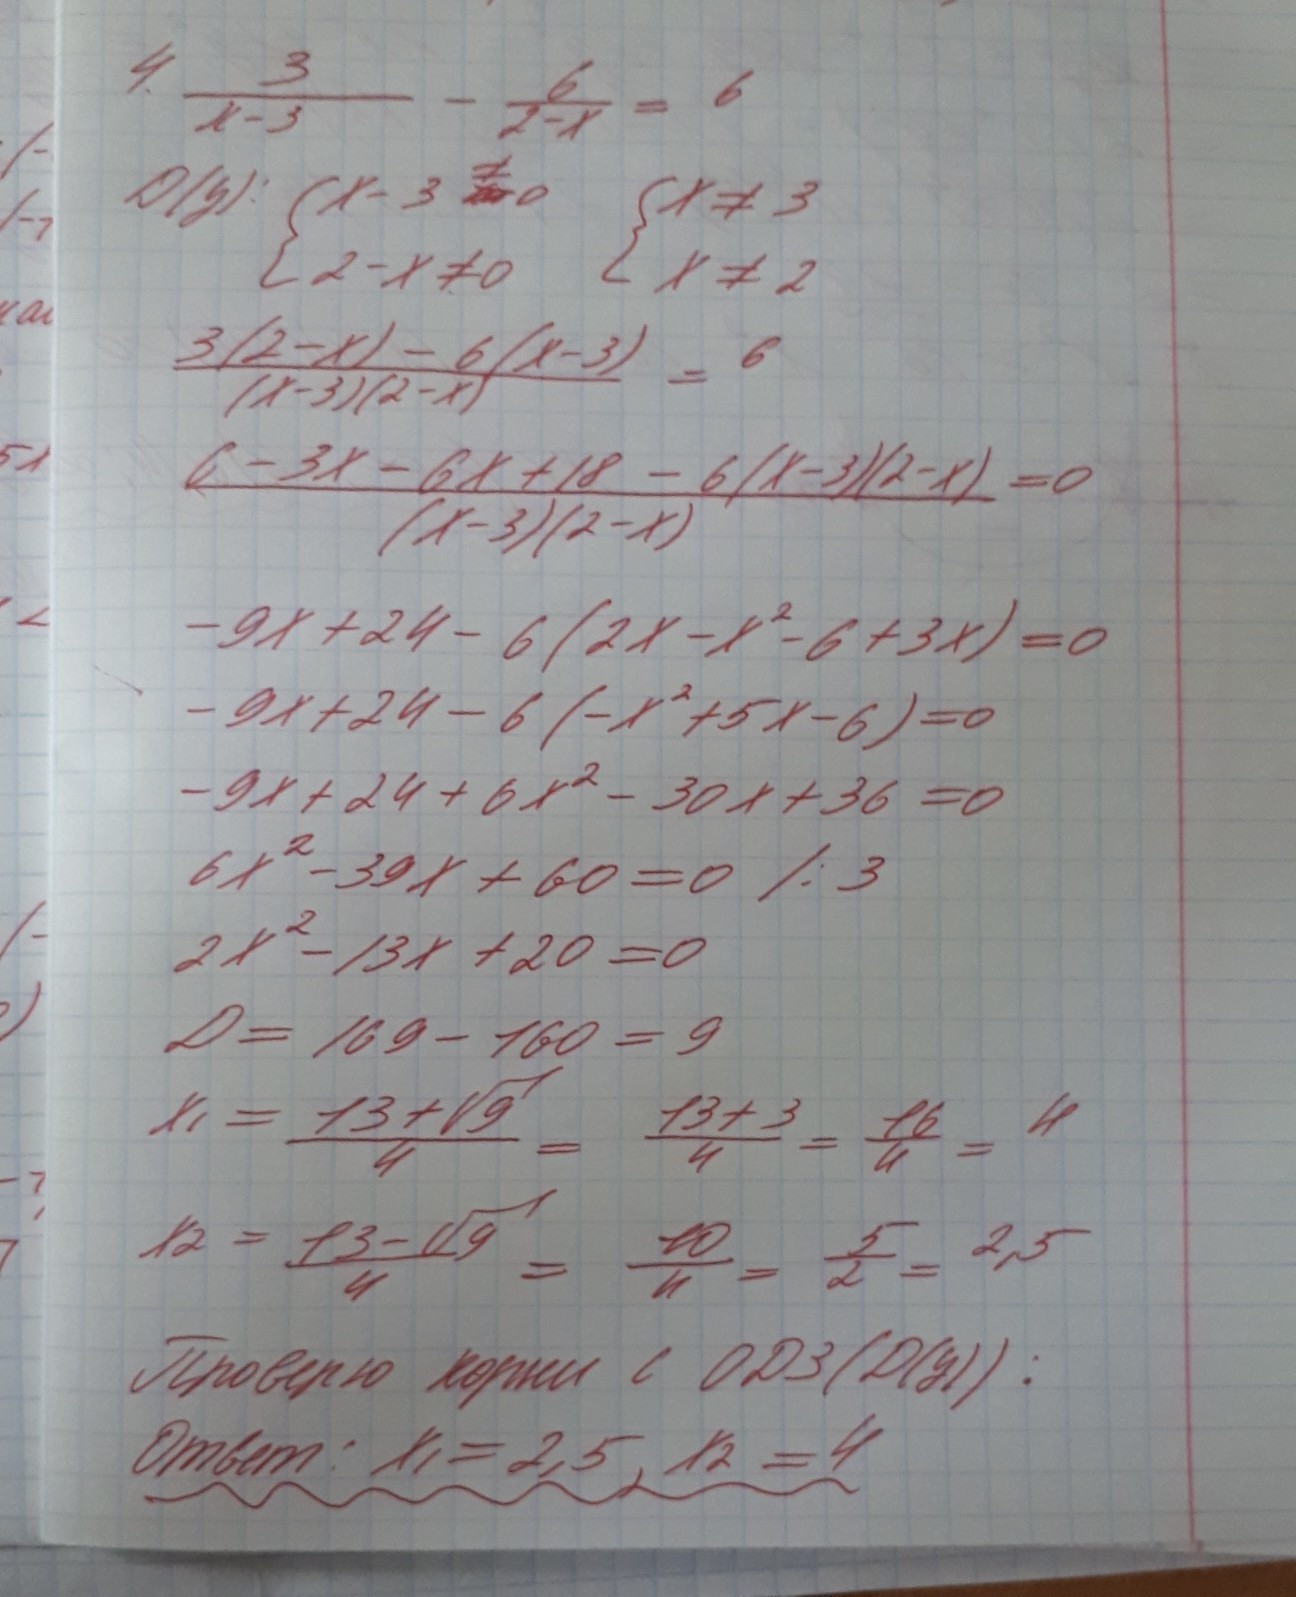 4. 3/(x-3) - 6/(2-x) = 6
D(y): { x-3 ≠ 0 { x ≠ 3
2-x ≠ 0 x ≠ 2
(3(2-x) - 6(x-3))/((x-3)(2-x)) = 6
(6-3x-6x+18-6(x-3)(2-x))/((x-3)(2-x)) = 0
-9x+24-6(2x-x²-6+3x)=0
-9x+24-6(-x²+5x-6)=0
-9x+24+6x²-30x+36=0
6x²-39x+60=0 /:3
2x²-13x+20=0
D=169-160=9
x1 = (13+√9)/4 = (13+3)/4 = 16/4 = 4
x2 = (13-√9)/4 = 10/4 = 5/2 = 2,5
Проверю корни с ОДЗ(D(y)):
Ответ: x1=2,5, x2=4